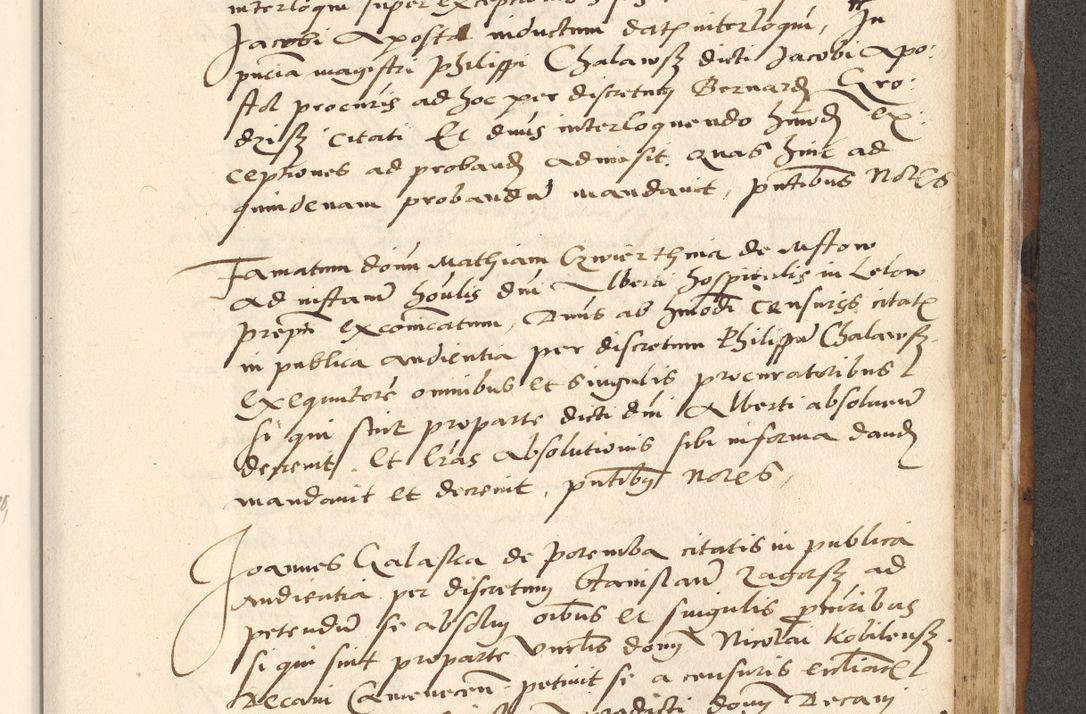 interloqui super exceptionibus
Jacobi Aposta inductum dat interloqui, In
pnciā magistri Philippi Chalawsz dicti Jacobi Apo:
stol procuris ad hoc per discretum Bernard Gro:
dzisz citati Et dnus interloquendo hmod ex:
ceptiones ad proband admisit, quas hinc ad
quindenam probandū mandavit, pntibus Nores
Famatum domi Mathiam Czwierthnia de Mstow
Ad instanē honlis dni Alberti hospitalis in Lelow
prepti excoicatum, Dnus ab hmodi censuris citat
in publica audientia per discretum Philippū Chalawsz
Exequutore omnibus et singulis procuratoribus
si qui sint pro parte dicti dni Alberti absoluere
decrevit, Et lras absolutionis sibi in forma dand
mandavit et decrevit, pntiby Nores,
Joannes Galaska de Poremba citatis in publica
Audientia per discretum Stanislaū Zagorsz ad
petendū se absolui oibus et singulis pcuribus
si qui sint pro parte Vnerlis domj Nicolai Kobilensz
Decani Camenecen petivit se a censuris ecclīac
predicti domj Decani